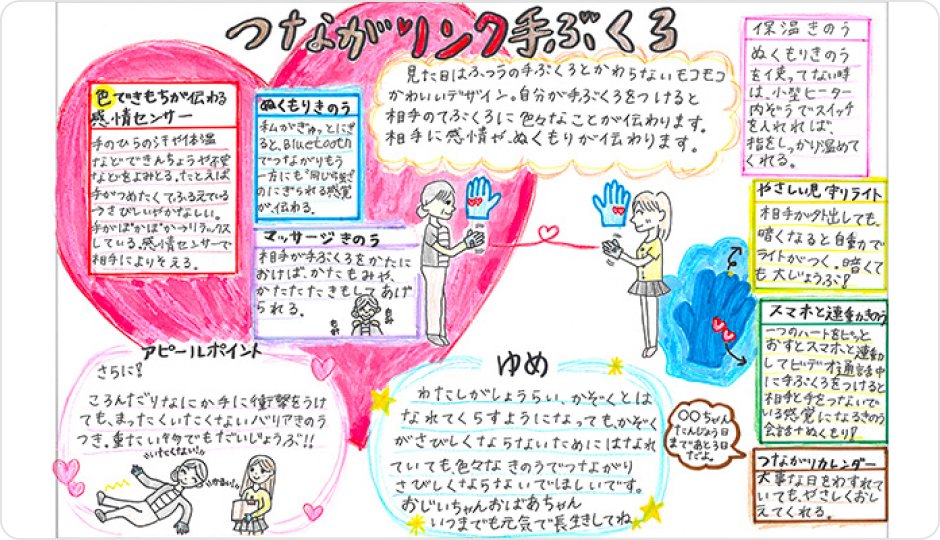 つながリンク手ぶくろ
見た目はふつうの手ぶくろとかわらないモコモコ
かわいいデザイン。自分が手ぶくろをつけると
相手のてぶくろに色々なことが伝わります。
相手に感情や、ぬくもりが伝わります。
色できもちが伝わる
感情センサー
手のひらの汗や体温
などできんちょうや不安
などをよみとる。たとえば
手がつめたくてふるえている
うさびしいやかなしい。
手がぽかぽかつリラックス
している。感情センサーで
相手によりそえる。
ぬくもりきのう
私がぎゅっとにぎ
ると、Bluetooth
でつながりもう
一方にも同じ強さ
のにぎられる感覚
が、伝わる。
マッサージきのう
相手が手ぶくろをかたに
おけば、かたもみや、
かたたたきもしてあげ
られる。
保温きのう
ぬくもりきのう
を使ってない時
は、小型ヒーター
内ぞうでスイッチ
を入れれば、
指をしっかり温めて
くれる。
やさしい見守りライト
相手が外出しても、
暗くなると自動で
ライトがつく。暗くて
も大じょうぶ!
スマホと連動きのう
一つのハートをピッと
おすとスマホと連動
してビデオ通話中
に手ぶくろをつけると
相手と手をつないで
いる感覚になるきのう
会話もぬくもり!
つながりカレンダー
大事な日をわすれて
いても、やさしくおし
えてくれる。
〇〇ちゃん
たんじょう日
まであと3日
だよ。
アピールポイント
さらに!
ころんだりなにか手に衝撃をうけ
ても、まったくいたくないバリアきのう
つき。重たい物でもだいじょうぶ!!
いたくない!
かるい!
ゆめ
わたしがしょうらい、かぞくとは
なれてくらすようになっても、かぞく
がさびしくならないためにはなれ
ていても、色々なきのうでつながり
さびしくならないでほしいです。
おじいちゃんおばあちゃん
いつまでも元気で長生きしてね